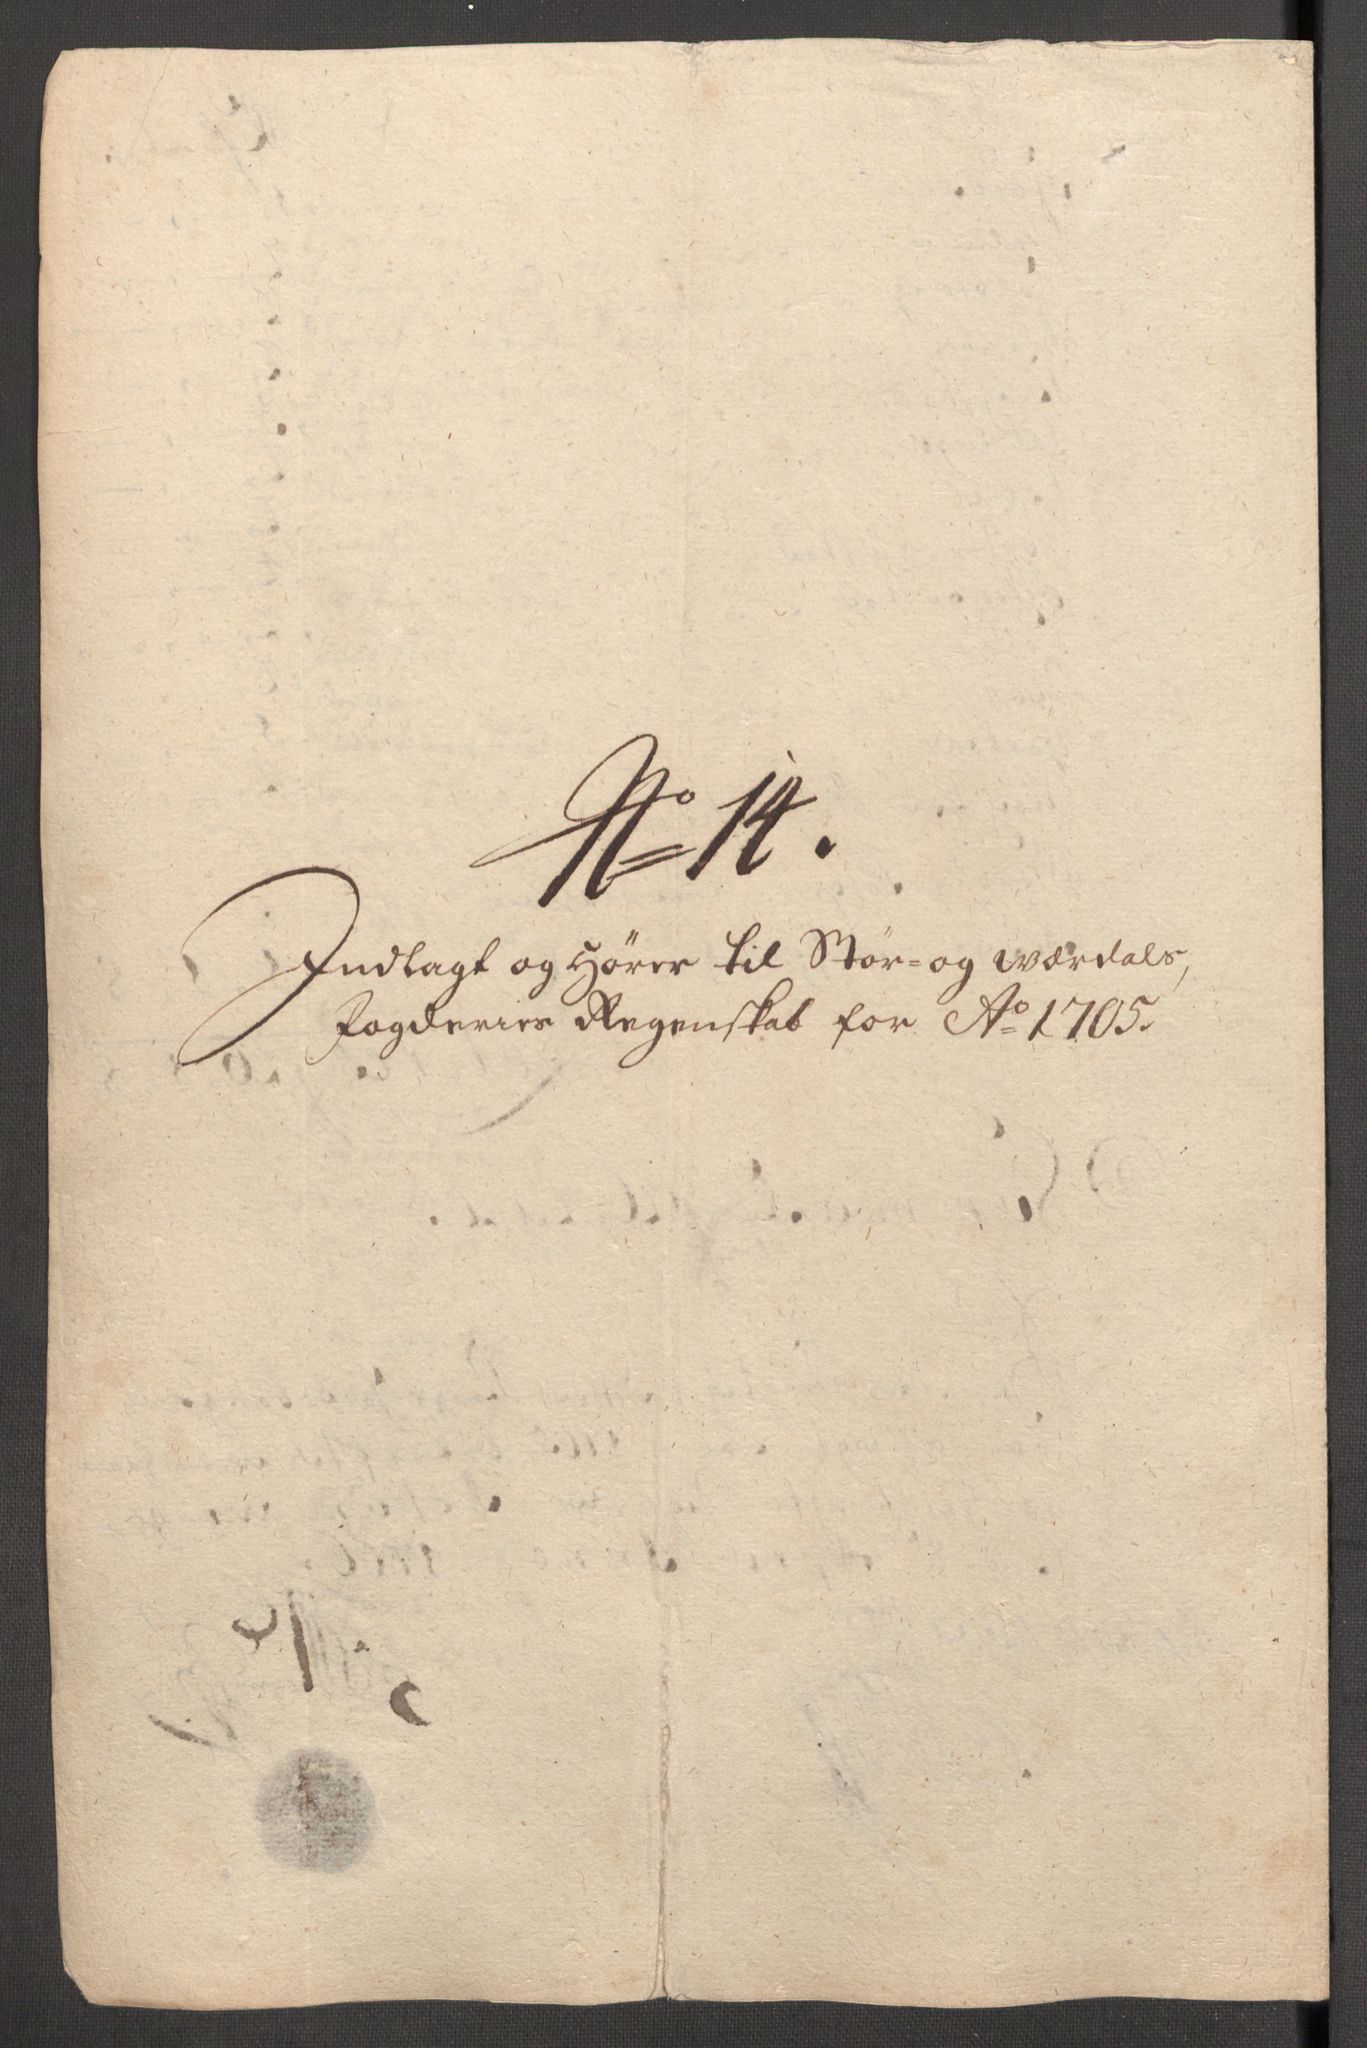 No 14.
Indlagt og Hörer til Stör- og Wærdals,
fogderies Regenskab for Ao 1705.